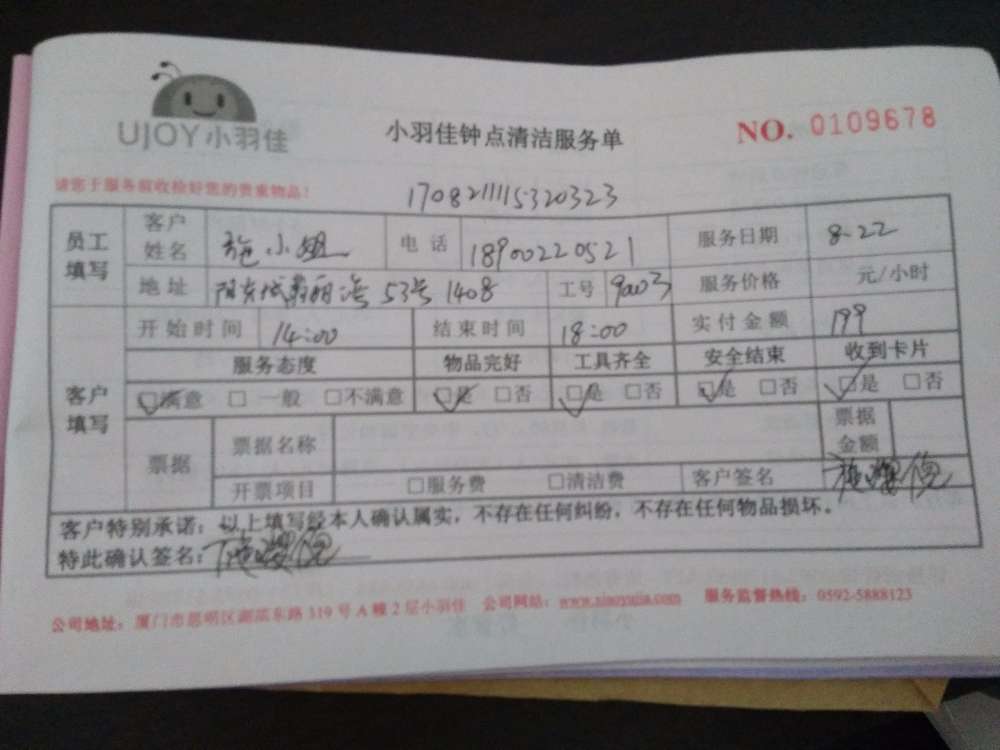 UJOY小羽佳
小羽佳钟点清洁服务单
NO. 0109678
请您于服务前收捡好您的贵重物品！
1708211115320323
员工填写 客户姓名 施小姐 电话 18900220521 服务日期 8-22
地址 阳光城翡丽湾 53号 1408 工号 9003 服务价格 元/小时
客户填写 开始时间 14:00 结束时间 18:00 实付金额 199
服务态度 物品完好 工具齐全 安全结束 收到卡片
☑满意 □一般 □不满意 ☑是 □否 ☑是 □否 ☑是 □否 ☑是 □否
票据 票据名称 票据金额
开票项目 □服务费 □清洁费 客户签名 施
客户特别承诺：以上填写经本人确认属实，不存在任何纠纷，不存在任何物品损坏。
特此确认签名：施
公司地址：厦门市思明区湖滨东路319号A幢2层小羽佳 公司网站：www.xiaoyujia.com 服务监督热线：0592-5888123